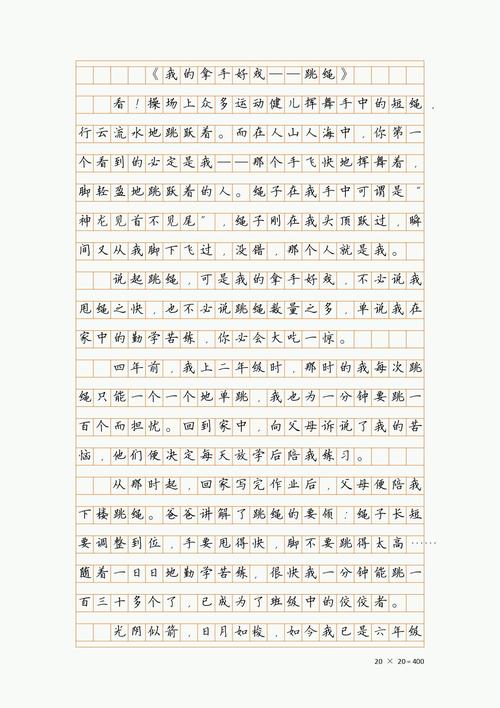 《我的拿手好戏——跳绳》
看！操场上众多运动健儿挥舞手中的短绳，
行云流水地跳跃着。而在人山人海中，你第一
个看到的必定是我——那个手飞快地挥舞着，
脚轻盈地跳跃着的人。绳子在我手中可谓是“
神龙见首不见尾”，绳子刚在我头顶跃过，瞬
间又从我脚下飞过，没错，那个人就是我。
说起跳绳，可是我的拿手好戏，不必说我
甩绳之快，也不必说跳绳数量之多，单说我在
家中的勤学苦练，你必会大吃一惊。
四年前，我上二年级时，那时的我每次跳
绳只能一个一个地单跳，我也为一分钟要跳一
百个而担忧。回到家中，向父母诉说了我的苦
恼，他们便决定每天放学后陪我练习。
从那时起，回家写完作业后，父母便陪我
下楼跳绳。爸爸讲解了跳绳的要领：绳子长短
要调整到位，手要甩得快，脚不要跳得太高……
随着一日日地勤学苦练，很快我一分钟能跳一
百三十多个了，已成为了班级中的佼佼者。
光阴似箭，日月如梭，如今我已是六年级
20 × 20=400